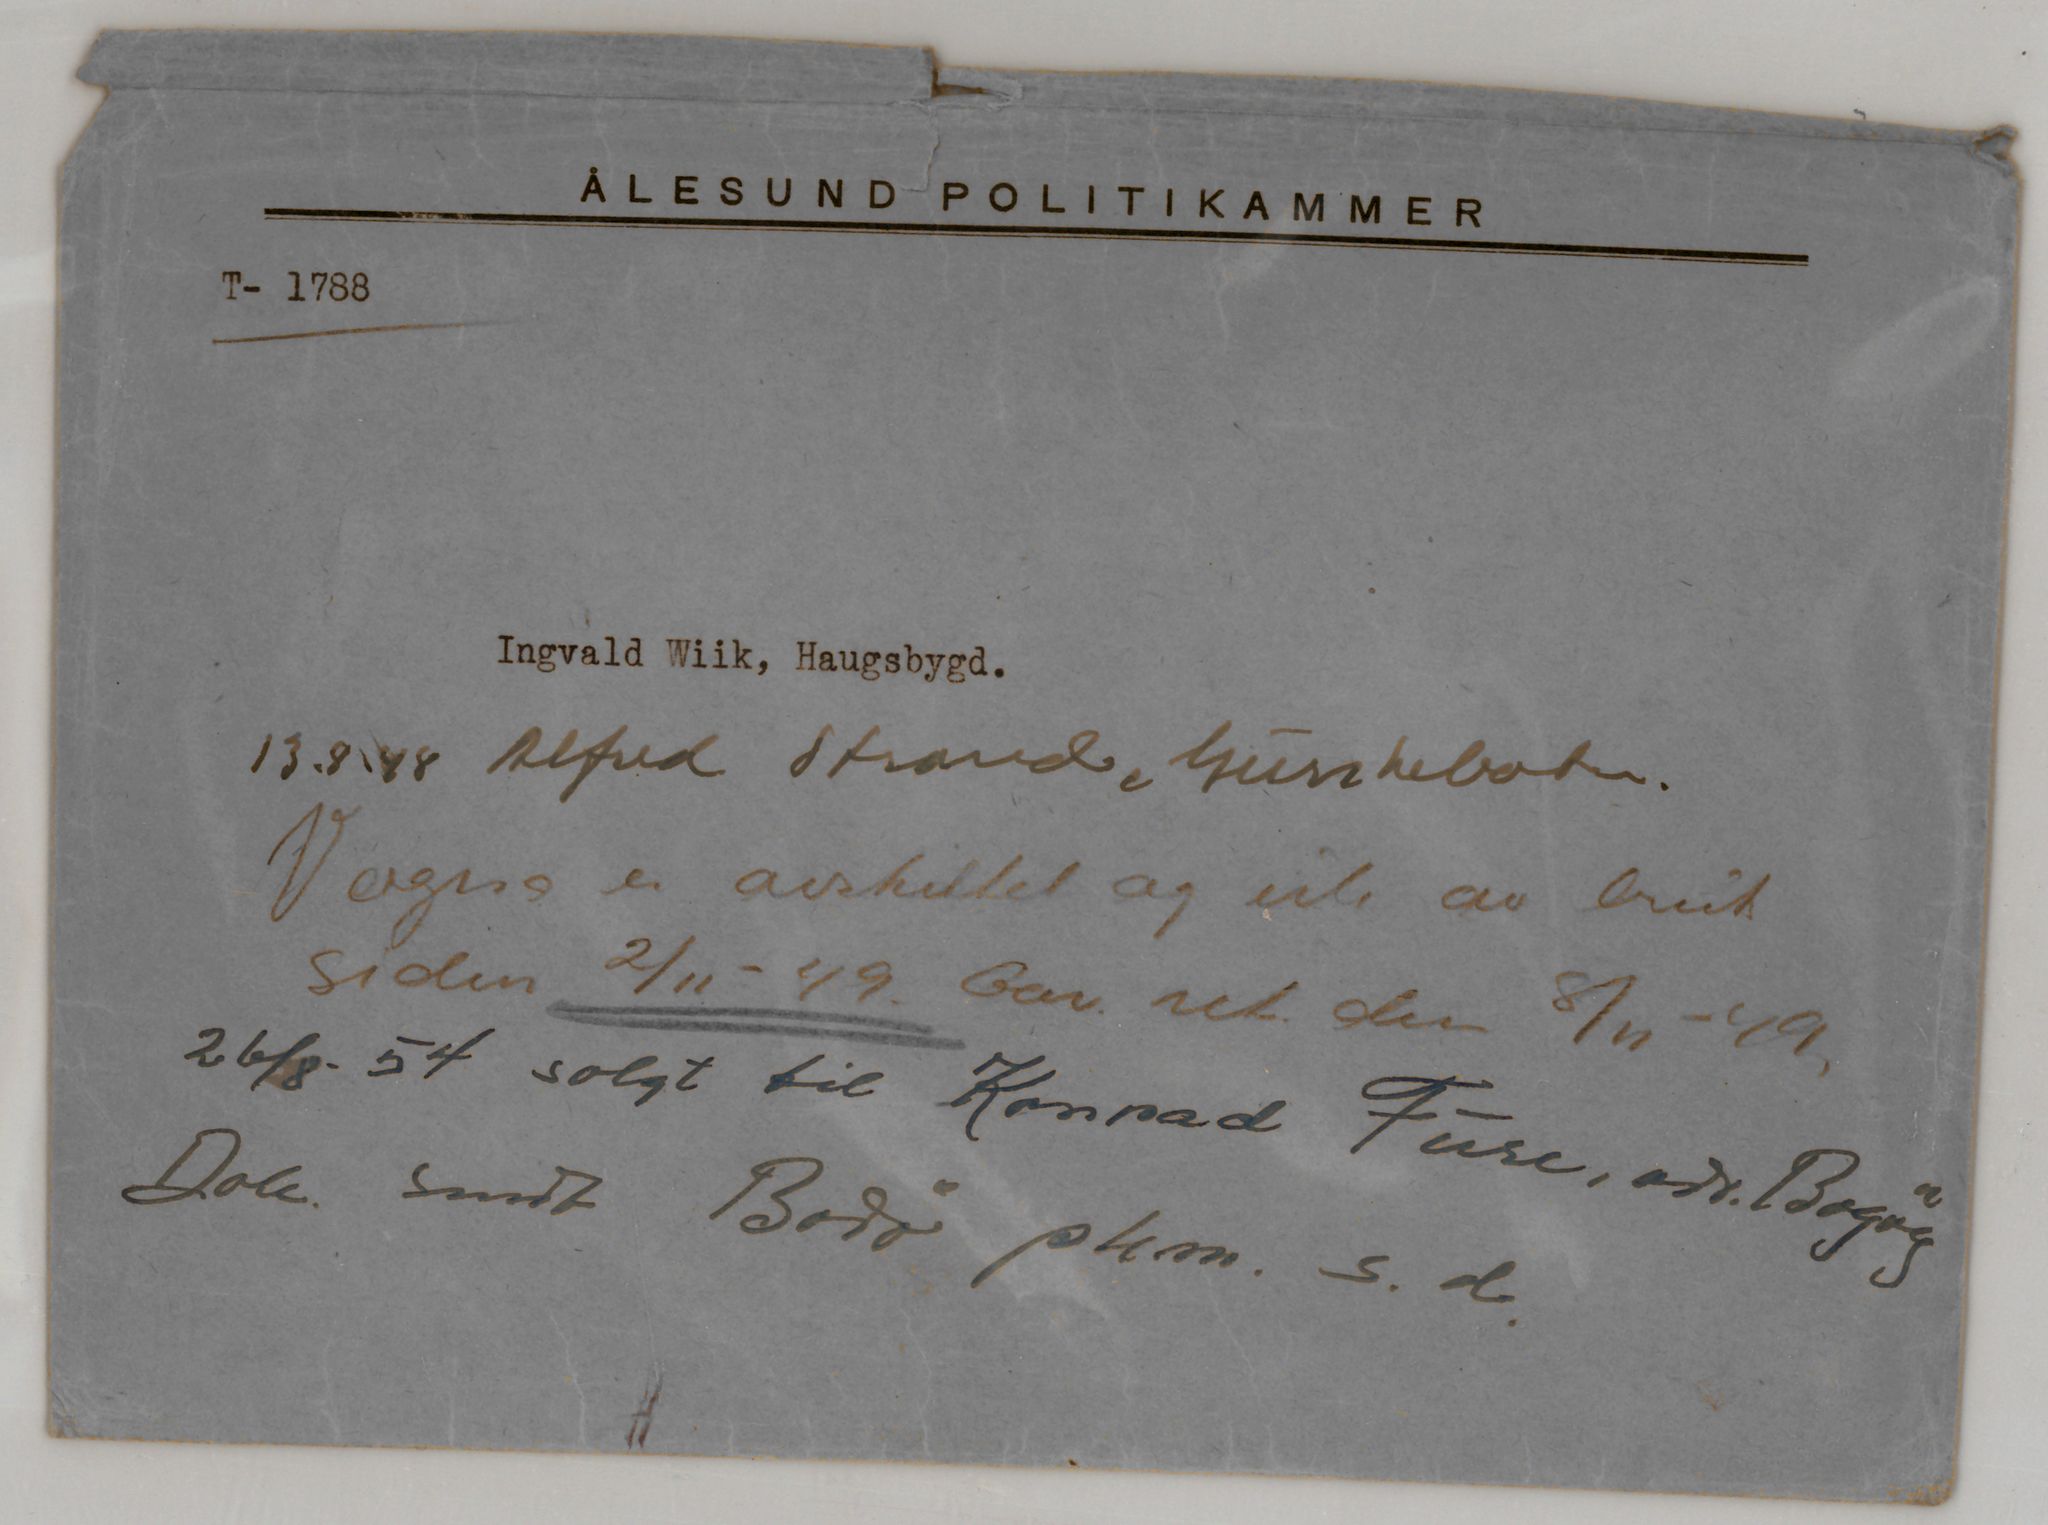 ÅLESUND POLITIKAMMER
T- 1788
Ingvald Wiik, Haugsbygd.
13.8.48 Alfred Strand, Gurskebotn.
Vogna er avskiltet og ute av bruk
siden 2/11-49. Gav. ret. den 8/11-49.
26/8-54 solgt til Konrad Fure, adr. Bogøy
Dok. sendt Bodø pkm. s. d.